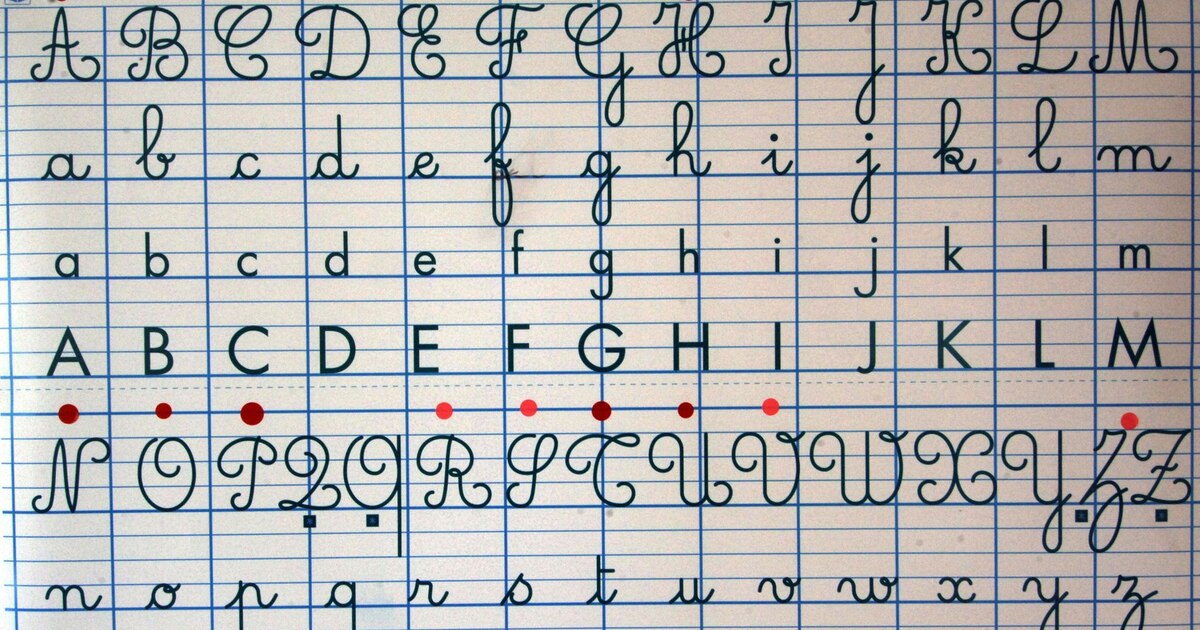 A B C D E F G H I J K L M
a b c d e f g h i j k l m
a b c d e f g h i j k l m
A B C D E F G H I J K L M
N O P Q Q R S T U V W X Y Z Z
n o p q r s t u v w x y z